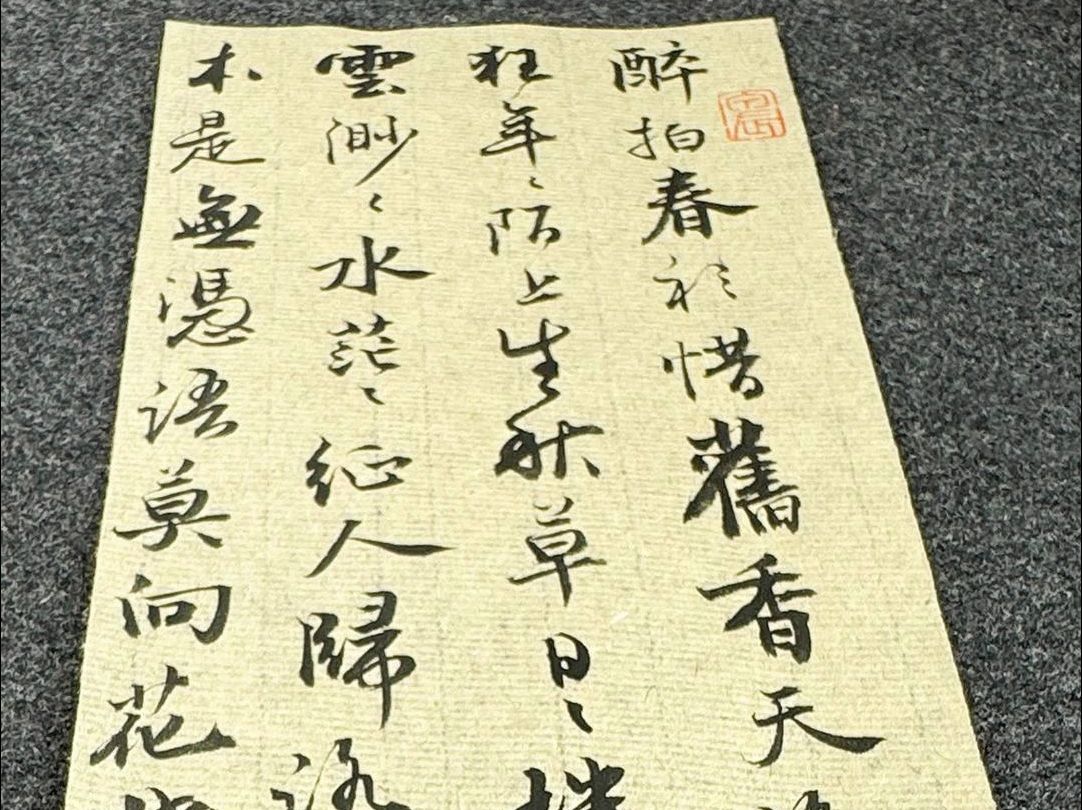 醉拍春衫惜舊香天
狂年〻陌上生秋草日〻樓
雲渺〻水茫〻征人歸路
本是無憑語莫向花